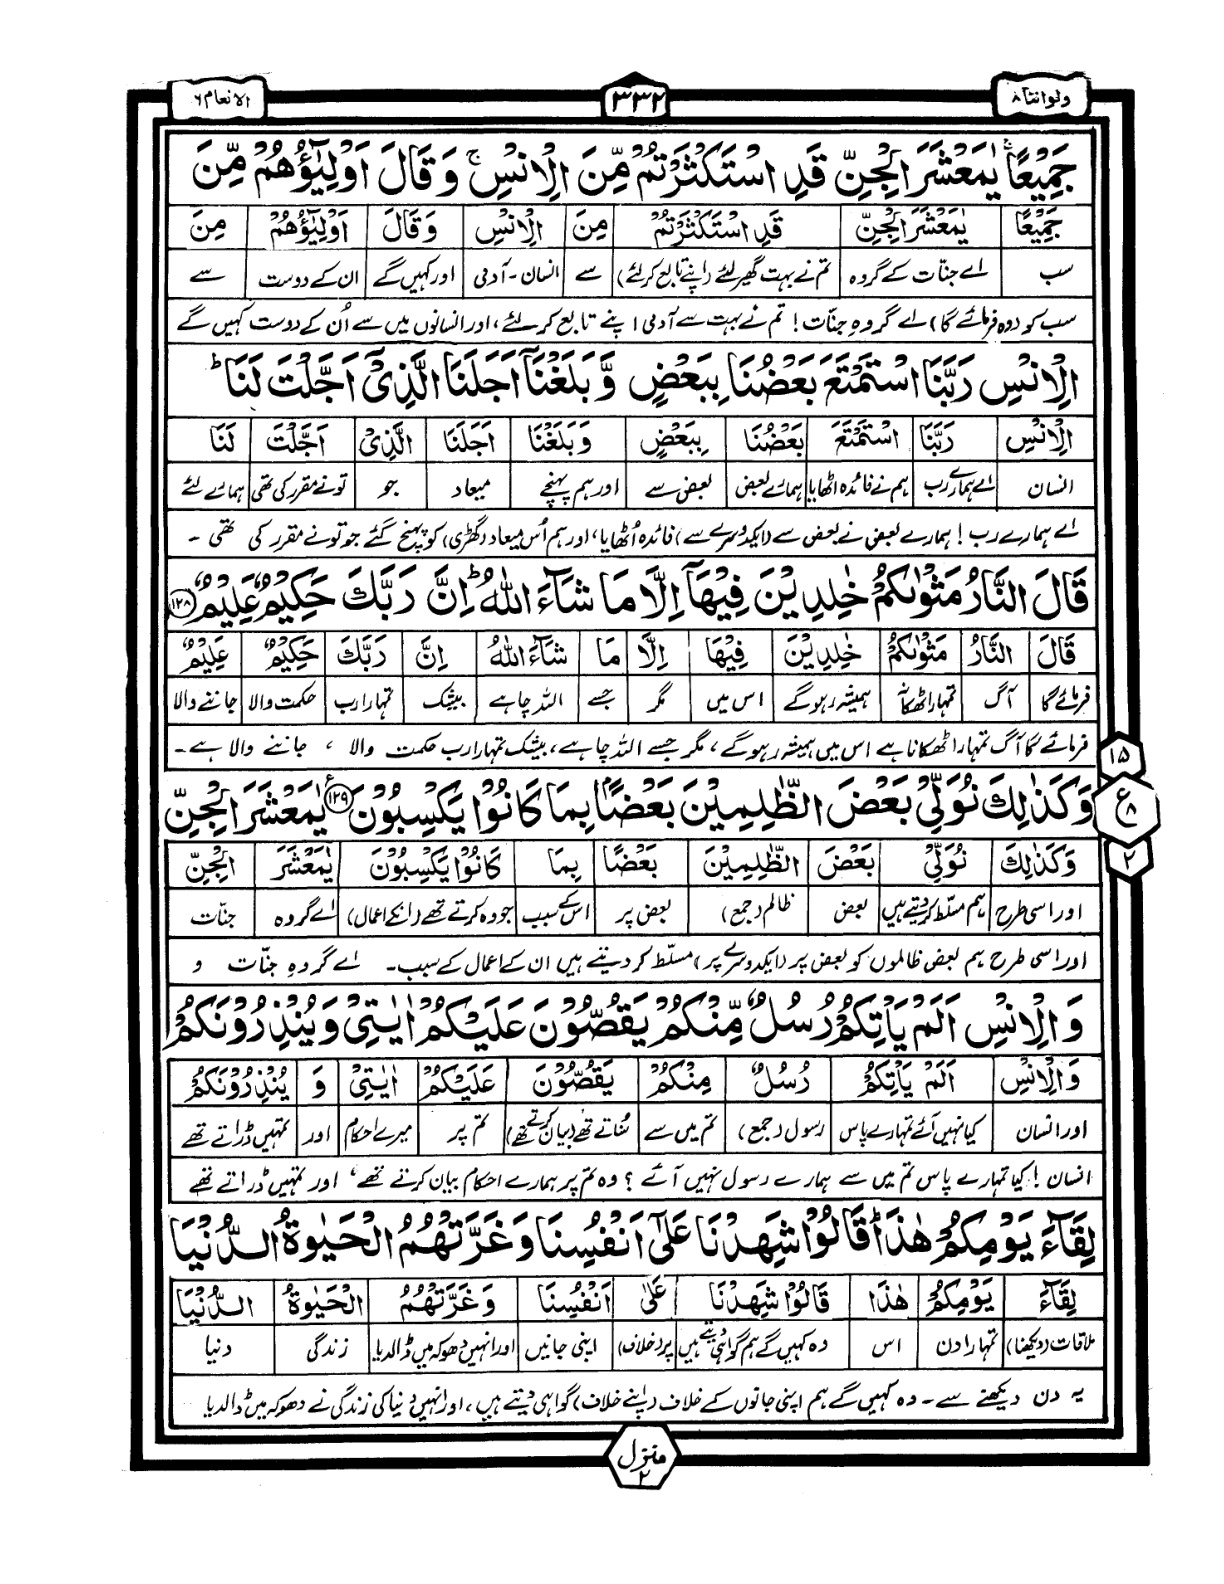 ولواننا ۸
۳۳۲
الانعام ۶
جَمِيْعًا ۚ يٰمَعْشَرَ الْجِنِّ قَدِ اسْتَكْثَرْتُمْ مِّنَ الْاِنْسِ ۚ وَقَالَ اَوْلِيٰٓؤُهُمْ مِّنَ
جَمِيْعًا يٰمَعْشَرَ الْجِنِّ قَدِ اسْتَكْثَرْتُمْ مِنَ الْاِنْسِ وَقَالَ اَوْلِيٰٓؤُهُمْ مِنَ
سب اے جنّات کے گروہ تم نے بہت گھیر لئے (اپنے تابع کر لئے) سے انسان - آدمی اور کہیں گے ان کے دوست سے
سب کو (وہ فرمائے گا) اے گروہِ جنّات! تم نے بہت سے آدمی اپنے تابع کر لئے، اور انسانوں میں سے اُن کے دوست کہیں گے
الْاِنْسِ رَبَّنَا اسْتَمْتَعَ بَعْضُنَا بِبَعْضٍ وَّبَلَغْنَآ اَجَلَنَا الَّذِيْٓ اَجَّلْتَ لَنَا ؕ
الْاِنْسِ رَبَّنَا اسْتَمْتَعَ بَعْضُنَا بِبَعْضٍ وَبَلَغْنَا اَجَلَنَا الَّذِيْ اَجَّلْتَ لَنَا
انسان اے ہمارے رب ہم نے فائدہ اٹھایا ہمارے بعض بعض سے اور ہم پہنچے میعاد جو تو نے مقرر کی تھی ہمارے لئے
اے ہمارے رب! ہمارے بعض نے بعض سے (ایکدوسرے سے) فائدہ اُٹھایا، اور ہم اُس میعاد (گھڑی) کو پہنچ گئے جو تو نے مقرر کی تھی ۔
قَالَ النَّارُ مَثْوٰىكُمْ خٰلِدِيْنَ فِيْهَآ اِلَّا مَا شَآءَ اللّٰهُ ؕ اِنَّ رَبَّكَ حَكِيْمٌ عَلِيْمٌ ۱۲۸
قَالَ النَّارُ مَثْوٰىكُمْ خٰلِدِيْنَ فِيْهَا اِلَّا مَا شَآءَ اللّٰهُ اِنَّ رَبَّكَ حَكِيْمٌ عَلِيْمٌ
فرمائے گا آگ تمہارا ٹھکانہ ہمیشہ رہو گے اس میں مگر جسے اللہ چاہے بیشک تمہارا رب حکمت والا جاننے والا
فرمائے گا آگ تمہارا ٹھکانا ہے اس میں ہمیشہ رہو گے، مگر جسے اللہ چاہے، بیشک تمہارا رب حکمت والا ، جاننے والا ہے ۔
وَكَذٰلِكَ نُوَلِّيْ بَعْضَ الظّٰلِمِيْنَ بَعْضًا بِمَا كَانُوْا يَكْسِبُوْنَ ۱۲۹ ع يٰمَعْشَرَ الْجِنِّ
وَكَذٰلِكَ نُوَلِّيْ بَعْضَ الظّٰلِمِيْنَ بَعْضًا بِمَا كَانُوْا يَكْسِبُوْنَ يٰمَعْشَرَ الْجِنِّ
اور اسی طرح ہم مسلّط کر دیتے ہیں بعض ظالم (جمع) بعض پر اس کے سبب جو وہ کرتے تھے (انکے اعمال) اے گروہ جنّات
اور اسی طرح ہم بعض ظالموں کو بعض پر (ایکدوسرے پر) مسلّط کر دیتے ہیں ان کے اعمال کے سبب ۔ اے گروہِ جنّات و
۱۵
ع ۸
۲
وَالْاِنْسِ اَلَمْ يَاْتِكُمْ رُسُلٌ مِّنْكُمْ يَقُصُّوْنَ عَلَيْكُمْ اٰيٰتِيْ وَيُنْذِرُوْنَكُمْ
وَالْاِنْسِ اَلَمْ يَاْتِكُمْ رُسُلٌ مِنْكُمْ يَقُصُّوْنَ عَلَيْكُمْ اٰيٰتِيْ وَ يُنْذِرُوْنَكُمْ
اور انسان کیا نہیں آئے تمہارے پاس رسول (جمع) تم میں سے سُناتے تھے (بیان کرتے تھے) تم پر میرے احکام اور تمہیں ڈراتے تھے
انسان! کیا تمہارے پاس تم میں سے ہمارے رسول نہیں آئے ؟ وہ تم پر ہمارے احکام بیان کرتے تھے، اور تمہیں ڈراتے تھے
لِقَآءَ يَوْمِكُمْ هٰذَا ؕ قَالُوْا شَهِدْنَا عَلٰٓى اَنْفُسِنَا وَغَرَّتْهُمُ الْحَيٰوةُ الدُّنْيَا
لِقَآءَ يَوْمِكُمْ هٰذَا قَالُوْا شَهِدْنَا عَلٰٓى اَنْفُسِنَا وَغَرَّتْهُمُ الْحَيٰوةُ الدُّنْيَا
ملاقات (دیکھنا) تمہارا دن اس وہ کہیں گے ہم گواہی دیتے ہیں پر (خلاف) اپنی جانیں اور انہیں دھوکہ میں ڈالدیا زندگی دنیا
یہ دن دیکھنے سے ۔ وہ کہیں گے ہم اپنی جانوں کے خلاف (اپنے خلاف) گواہی دیتے ہیں، اور انہیں دنیا کی زندگی نے دھوکہ میں ڈالدیا
منزل ۲